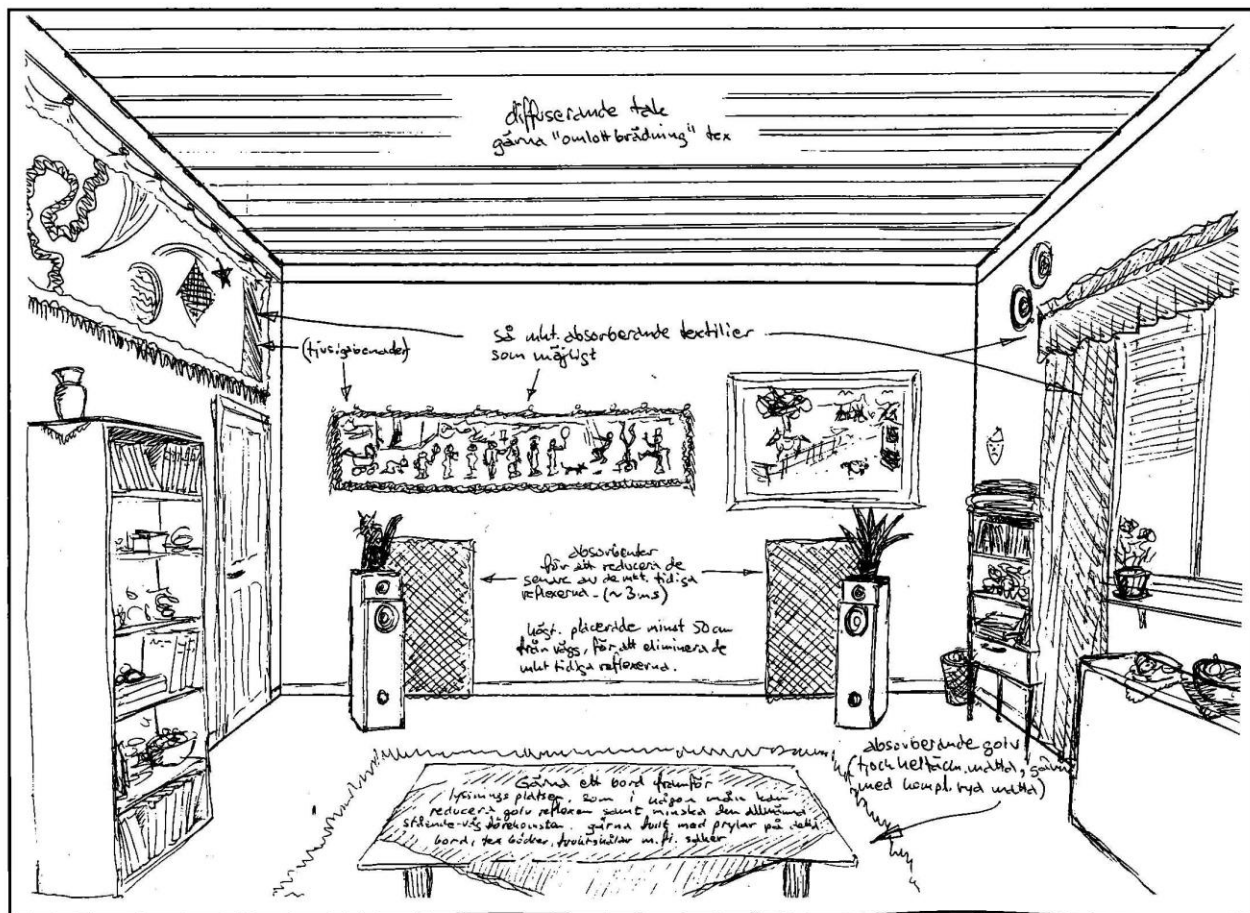 diffuserande tak
gärna "omlottbrädning" tex
så mkt. absorberande textilier
som möjligt
(tjusigabonader)
absorbenter
för att reducera de
senare av de mkt. tidiga
reflexerna. (~3ms)
högt. placerade minst 50 cm
från vägg, för att eliminera de
mkt tidiga reflexerna.
absorberande golv
(tjock heltäckn. matta, gärna
med kompl. rya matta)
Gärna ett bord framför
lyssningsplatsen, som i någon mån kan
reducera golvreflexen samt minska den allmänna
stående-våg förekomsten. gärna fullt med prylar på
bord, tex böcker, fruktskålar m.fl. saker